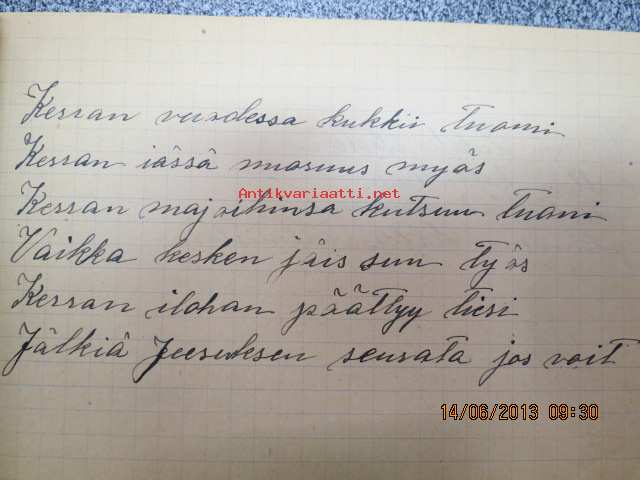 Kerran vuodessa kukkii tuomi
Kerran iässä nuoruus myös
Antikvariaatti.net
Kerran majoihinsa kutsuu tuoni
Vaikka kesken jäis sun työs
Kerran ilohan päättyy tiesi
Jälkiä Jeesuksen seurata jos voit
14/06/2013 09:30